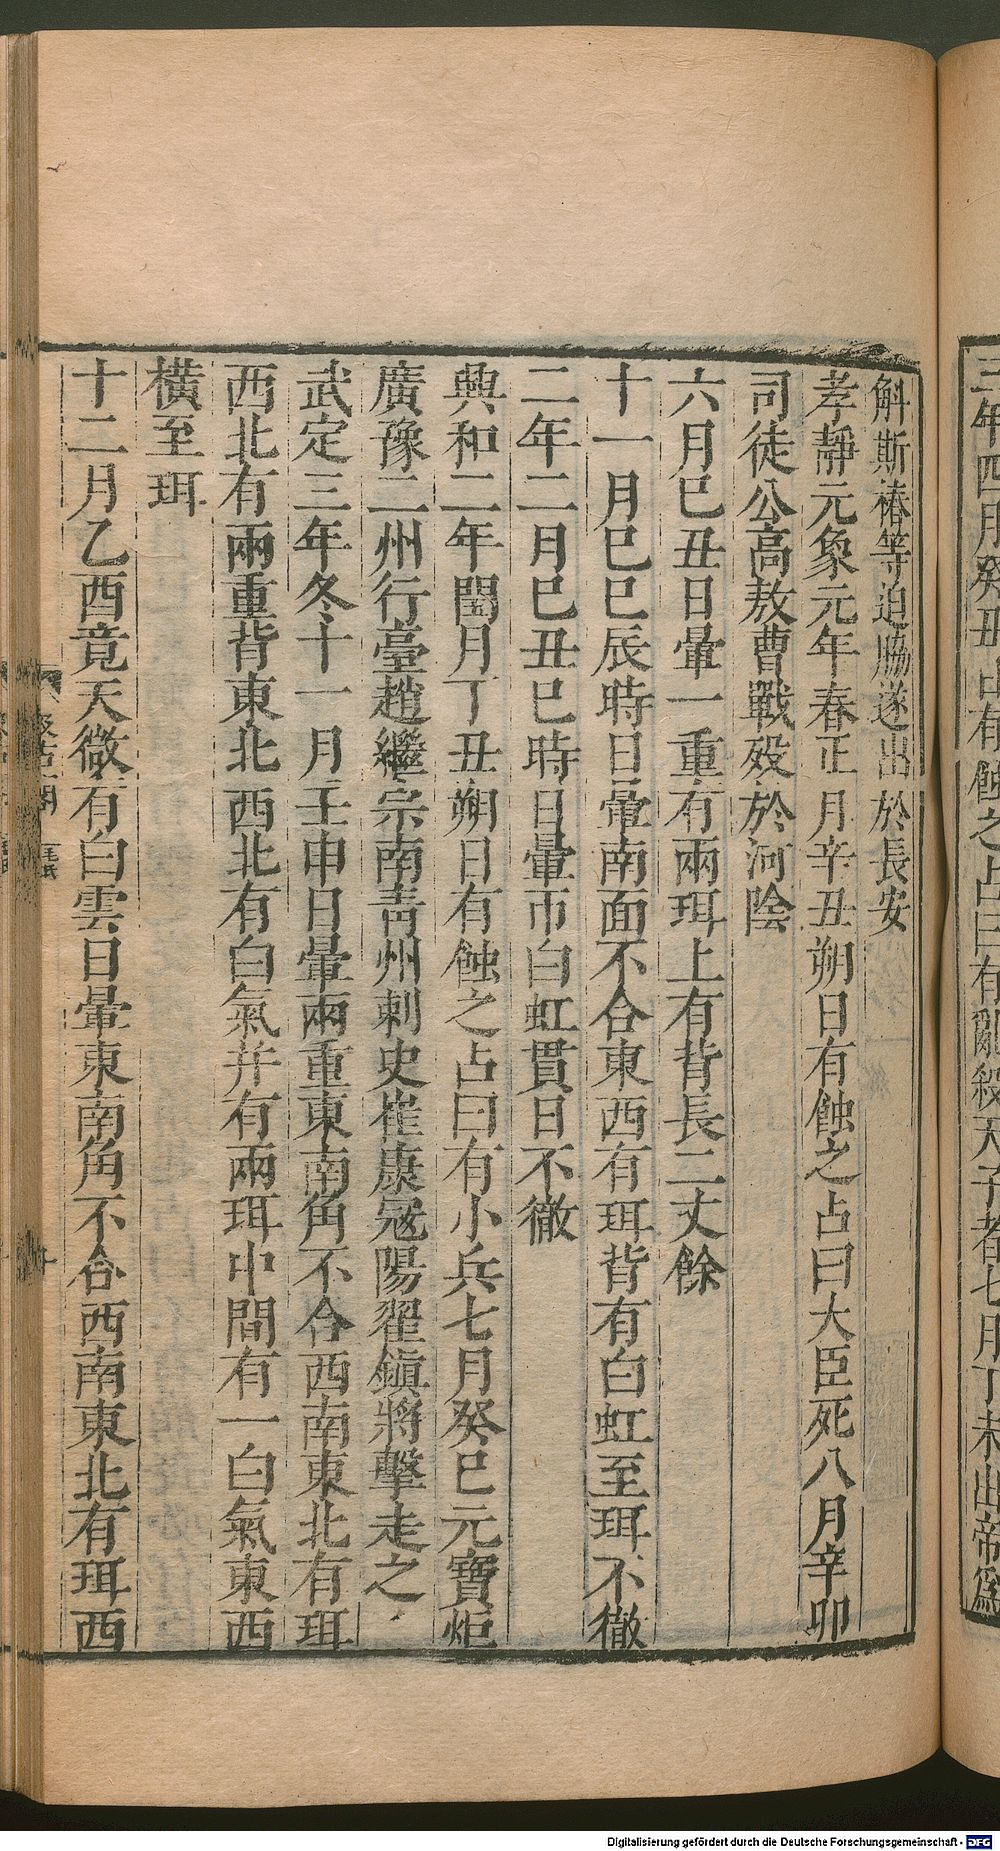 斛斯椿等迫脇遂出於長安
孝靜元象元年春正月辛丑朔日有蝕之占曰大臣死八月辛卯
司徒公高敖曹戰殁於河陰
六月巳丑日暈一重有兩珥上有背長二丈餘
十一月巳巳辰時日暈南面不合東西有珥背有白虹至珥不徹
二年二月巳丑巳時日暈帀白虹貫日不徹
興和二年閏月丁丑朔日有蝕之占曰有小兵七月癸巳元寶炬
廣豫二州行臺趙繼宗南青州刺史崔康寇陽翟鎮將擊走之
武定三年冬十一月壬申日暈兩重東南角不合西南東北有珥
西北有兩重背東北西北有白氣并有兩珥中間有一白氣東西
橫至珥
十二月乙酉竟天微有白雲日暈東南角不合西南東北有珥西
汲古閣
毛氏
三年四月癸丑日有蝕之占曰有亂殺天子者七月丁未出帝爲
Digitalisierung gefördert durch die Deutsche Forschungsgemeinschaft - DFG